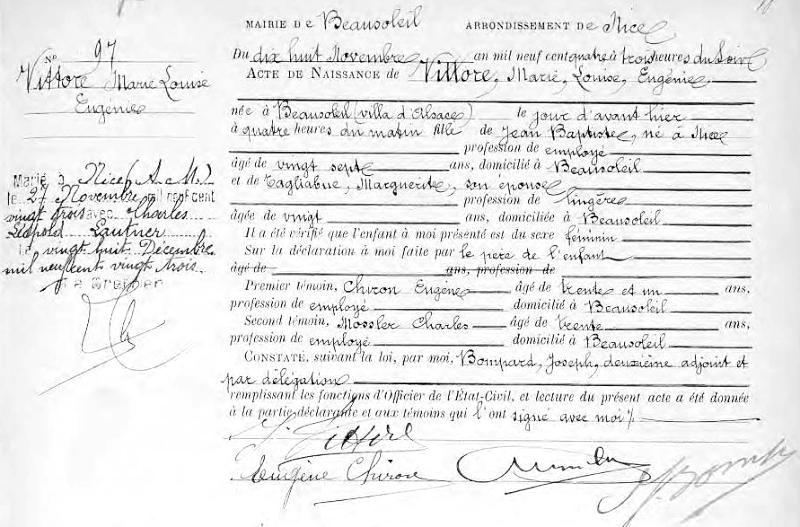 MAIRIE DE Beausoleil ARRONDISSEMENT DE Nice
No 97
Vittore Marie Louise
Eugénie
Marié à Nice (A.M.)
le 27 Novembre mil neuf cent
vingt trois avec Charles
Léopold Lautner
le vingt huit Décembre
mil neuf cent vingt trois.
Le Greffier
Du dix huit Novembre an mil neuf cent quatre à trois heures du Soir
ACTE DE NAISSANCE DE Vittore, Marie, Louise, Eugénie
née à Beausoleil (villa d'Alsace) le jour d'avant hier
à quatre heures du matin fille de Jean Baptiste, né à Nice
profession de employé
âgé de vingt sept ans, domicilié à Beausoleil
et de Tagliabue, Marguerite, son épouse
profession de lingère
âgée de vingt ans, domiciliée à Beausoleil
Il a été vérifié que l'enfant à moi présenté est du sexe féminin
Sur la déclaration à moi faite par le père de l'enfant
âgé de ans, profession de
Premier témoin, Chiron Eugène âgé de trente et un ans,
profession de employé domicilié à Beausoleil
Second témoin, Mossler Charles âgé de trente ans,
profession de employé domicilié à Beausoleil
CONSTATÉ, suivant la loi, par moi, Bompard, Joseph, deuxième adjoint et
par délégation
remplissant les fonctions d'Officier de l'État-Civil, et lecture du présent acte a été donnée
à la partie déclarante et aux témoins qui l'ont signé avec moi
Vittore
Eugène Chiron